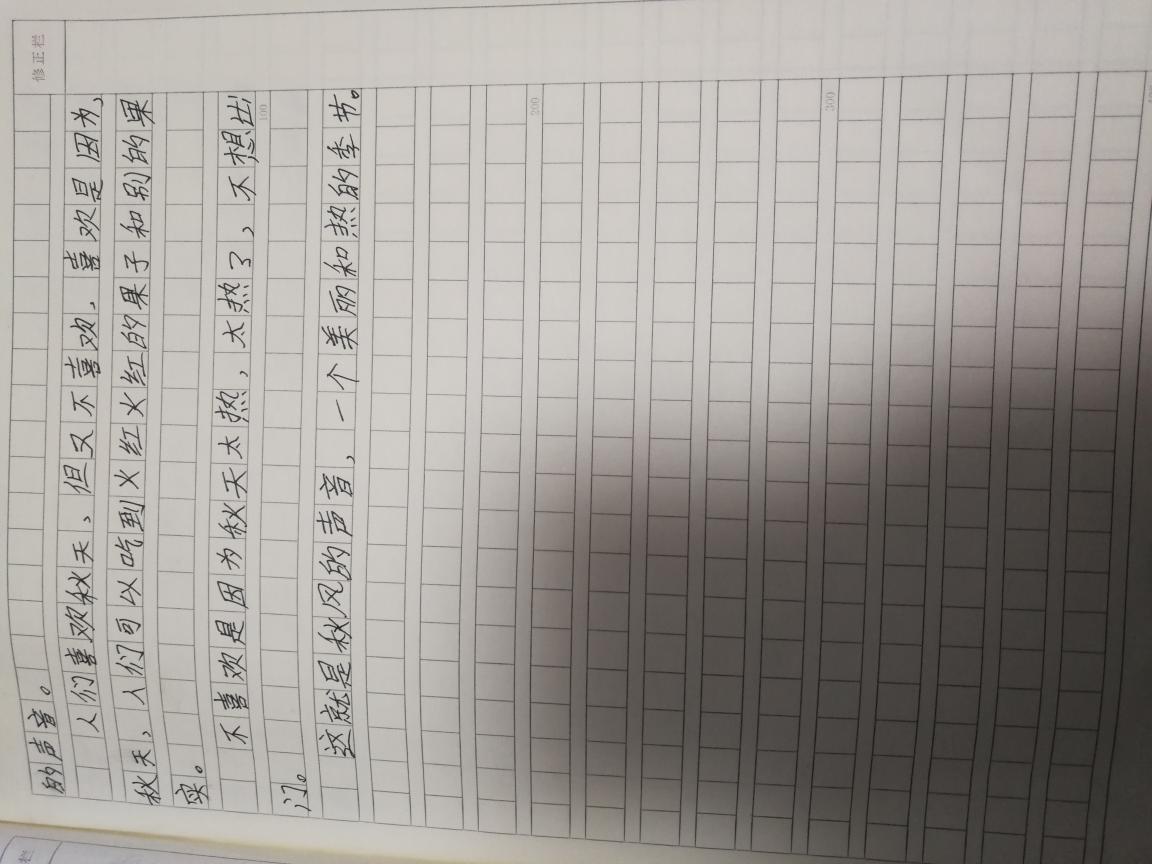 修正栏
的声音。
人们喜欢秋天、但又不喜欢、喜欢是因为,
秋天、人们可以吃到火红火红的果子和别的果
实。
不喜欢是因为秋天太热,太热了、不想出
100
门。
这就是秋风的声音、一个美丽和热的季节。
200
300
栏